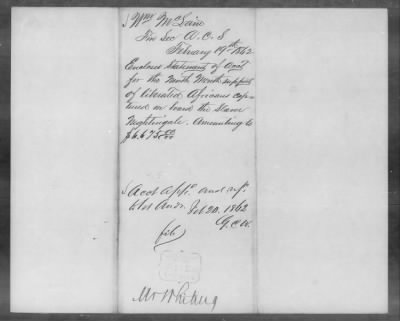 Wm McLain
Fin Sec A.C.S
February 19th 1862
Enclosed statement of acct
for the Ninth Month support
of liberated Africans cap-
tured on board the Slaver
Nightingale. Amounting to
$6.675 00/00
Acct Appd. and
to 1st Audr. Feb 20. 1862
G.C.W.
file
Mr Whiting